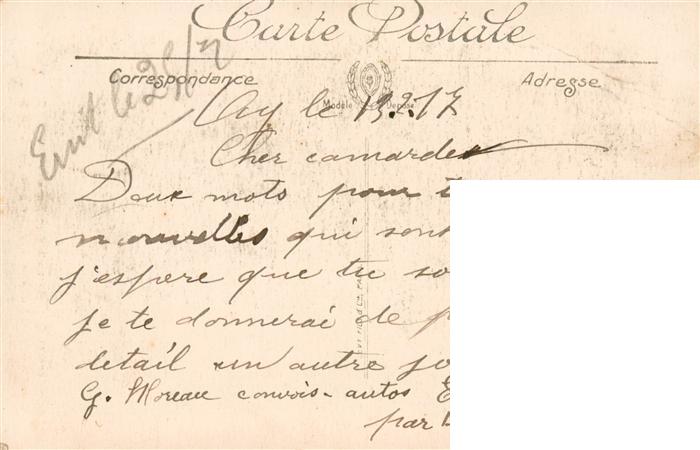 Carte Postale
Correspondance
Adresse
Modèle Déposé
Ay le 19.2.17
Cher camarde
Deux mots pour t
nouvelles qui sont
j'espere que tu so
je te donnerai de p
detail un autre jo
G. Moreau convois-autos E
par